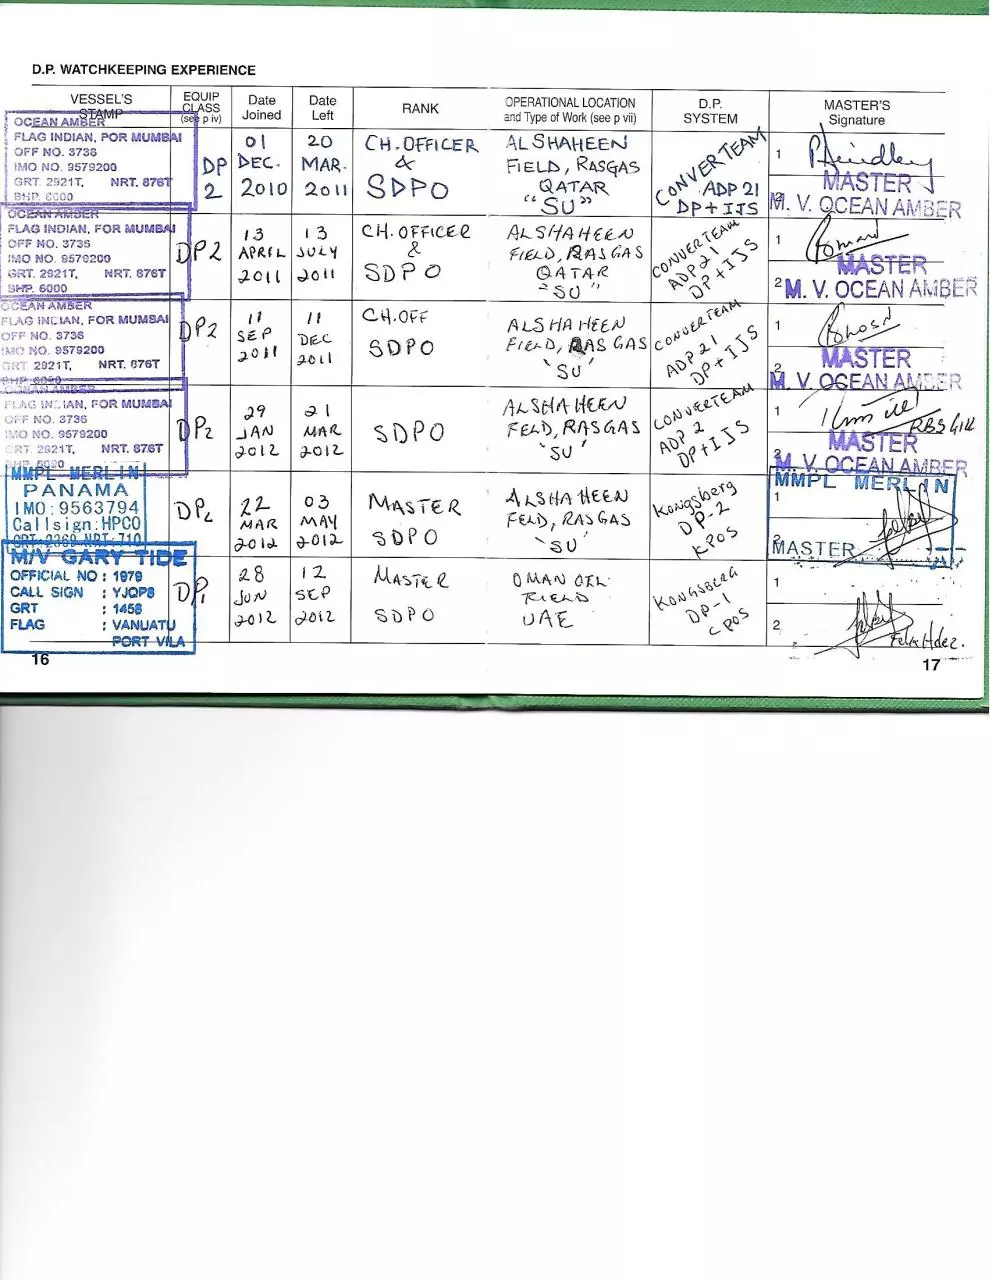 D.P. WATCHKEEPING EXPERIENCE
VESSEL'S STAMP
EQUIP CLASS (see p iv)
Date Joined
Date Left
RANK
OPERATIONAL LOCATION and Type of Work (see p vii)
D.P. SYSTEM
MASTER'S Signature
OCEAN AMBER
FLAG INDIAN, POR MUMBAI
OFF NO. 3736
IMO NO. 9579200
GRT. 2921T, NRT. 876T
BHP. 6000
DP 2
01 DEC. 2010
20 MAR. 2011
CH. OFFICER & SDPO
AL SHAHEEN
FIELD, RASGAS
QATAR
"SU"
CONVERTEAM
ADP 21
DP + IJS
1
MASTER
M. V. OCEAN AMBER
OCEAN AMBER
FLAG INDIAN, FOR MUMBAI
OFF NO. 3736
IMO NO. 9579200
GRT. 2921T, NRT. 876T
BHP. 6000
DP2
13 APRIL 2011
13 JULY 2011
CH. OFFICER & SDPO
AL SHAHEEN
FIELD, RASGAS
QATAR
"SU"
CONVERTEAM
ADP 21
DP + IJS
1
MASTER
2 M. V. OCEAN AMBER
OCEAN AMBER
FLAG INDIAN, FOR MUMBAI
OFF NO. 3736
IMO NO. 9579200
GRT 2921T, NRT. 876T
BHP 6000
DP2
11 SEP 2011
11 DEC 2011
CH. OFF
SDPO
ALSHAHEEN
FIELD, RASGAS
'SU'
CONVERTEAM
ADP 21
DP + IJS
1
MASTER
2
M. V. OCEAN AMBER
OCEAN AMBER
FLAG INDIAN, FOR MUMBAI
OFF NO. 3736
IMO NO. 9579200
GRT. 2921T, NRT. 876T
BHP. 6000
DP2
29 JAN 2012
21 MAR 2012
SDPO
ALSHAHEEN
FELD, RASGAS
'SU'
CONVERTEAM
ADP 2
DP + IJS
1
RBS GILL
MASTER
2
M. V. OCEAN AMBER
MMPL MERLIN
PANAMA
IMO:9563794
Callsign:HPCO
GRT:2369 NRT:710
DP2
22 MAR 2012
03 MAY 2012
MASTER
SDPO
ALSHAHEEN
FELD, RASGAS
'SU'
Kongsberg
DP-2
KPOS
MMPL MERLIN
1
2
MASTER
M/V GARY TIDE
OFFICIAL NO : 1979
CALL SIGN : YJQP8
GRT : 1458
FLAG : VANUATU
PORT VILA
DP1
28 JUN 2012
12 SEP 2012
MASTER
SDPO
OMAN OIL
FIELD
UAE
KONGSBERG
DP-1
CPOS
1
2
Felix Hdez.
16
17